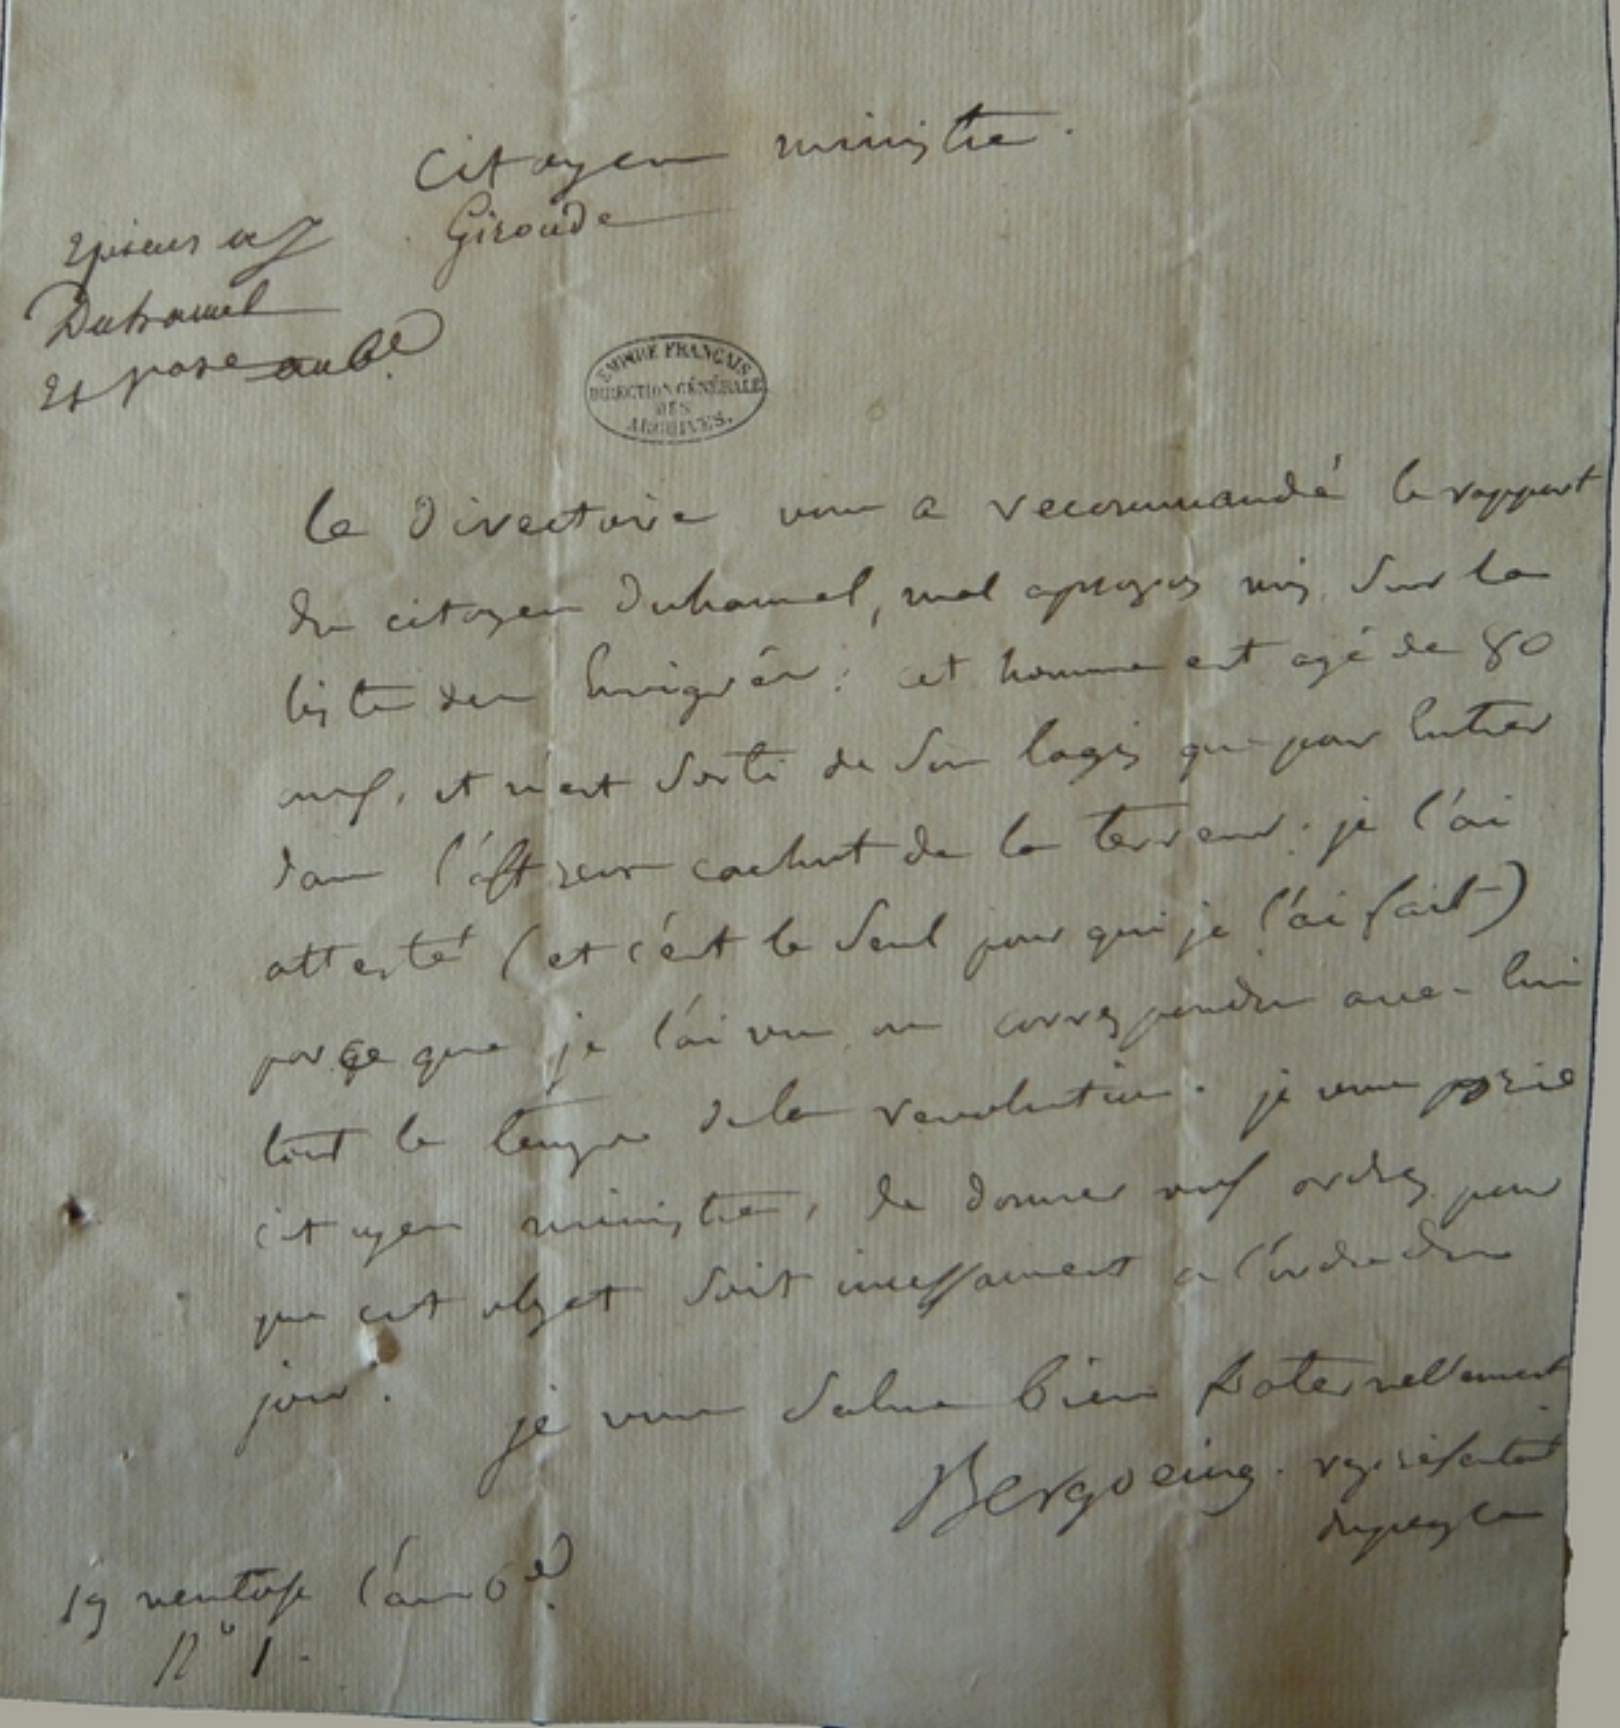 Citoyen ministre.
Gironde
Duhamel
EMPIRE FRANÇAIS
DIRECTION GÉNÉRALE
DES
ARCHIVES.
le Directoire vous a recommandé le rapport
du citoyen Duhamel, mal apropos mis sur la
liste des Emigrés: cet homme est agé de 80
ans, et n'est sorti de son logis que pour Entrer
dans l'affreux cachot de la terreur. je l'ai
attesté (et c'est le seul pour qui je l'ai fait)
parce que je l'ai vu ou correspondu avec lui
tout le temps de la revolution. je vous prie
citoyen ministre, de donner vos ordres pour
que cet objet soit incessament a l'ordre du
jour.
je vous salue bien fraternellement
Bergoeing. représentant
du peuple
19 ventose l'an 6e.
N° 1.